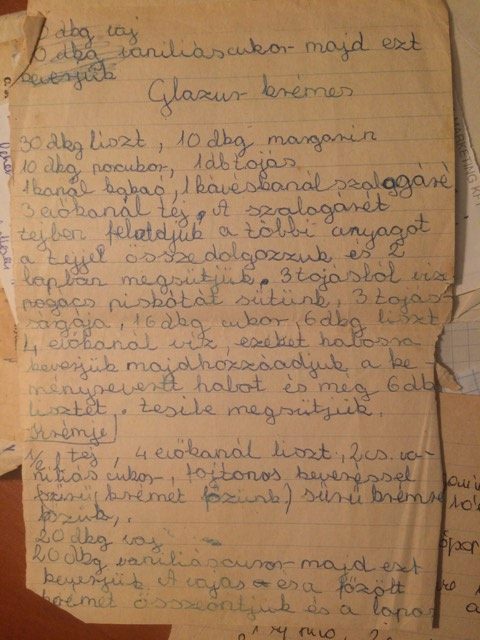 0 dbg vaj
0 dkg vaniliáscukor majd ezt
beverjük
Glazur krémes
30 dkg liszt, 10 dbg margarin
10 dkg porcukor, 1 db tojás
1 kanál kakaó, 1 kávéskanál szalagáré
3 evőkanál tej. A szalagarét
tejben feloldjuk a többi anyagot
a tejjel összedolgozzuk és 2
lapban megsütjük. 3 tojásból viz
pogács piskótát sütünk, 3 tojás-
sárgája, 16 dkg cukor, 6 dkg liszt
4 evőkanál viz, ezeket habossa
keverjük majd hozzáadjuk a ke
ménysevert habot és még 6 dk
lisztet. Tesile megsütjük.
Krémje
1/2 l tej, 4 evőkanál liszt, 2 cs. va-
niliás cukor, fojtonos keveréssel
krémet főzünk) sürü krémre
főzük,
20 dkg vaj
20 dkg vaniliáscukor majd ezt
keverjük A vajas és a főzött
krémet összeöntjük és a lapos